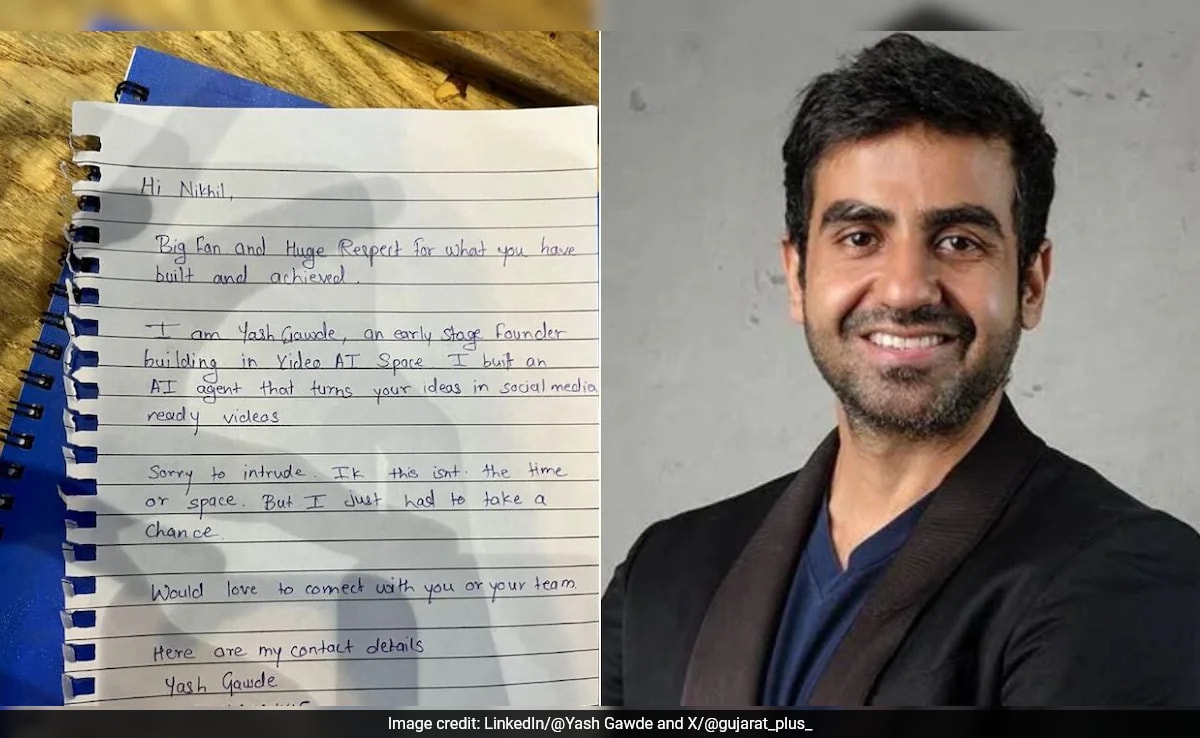 Hi Nikhil,
Big Fan and Huge Respect for what you have
built and achieved.
I am Yash Gawde, an early stage founder
building in Video AI Space. I built an
AI agent that turns your ideas in social media
ready videos
Sorry to intrude. Ik this isnt the time
or space. But I just had to take a
Chance.
Would love to connect with you or your team.
Here are my contact details
Yash Gawde
Image credit: LinkedIn/@Yash Gawde and X/@gujarat_plus_